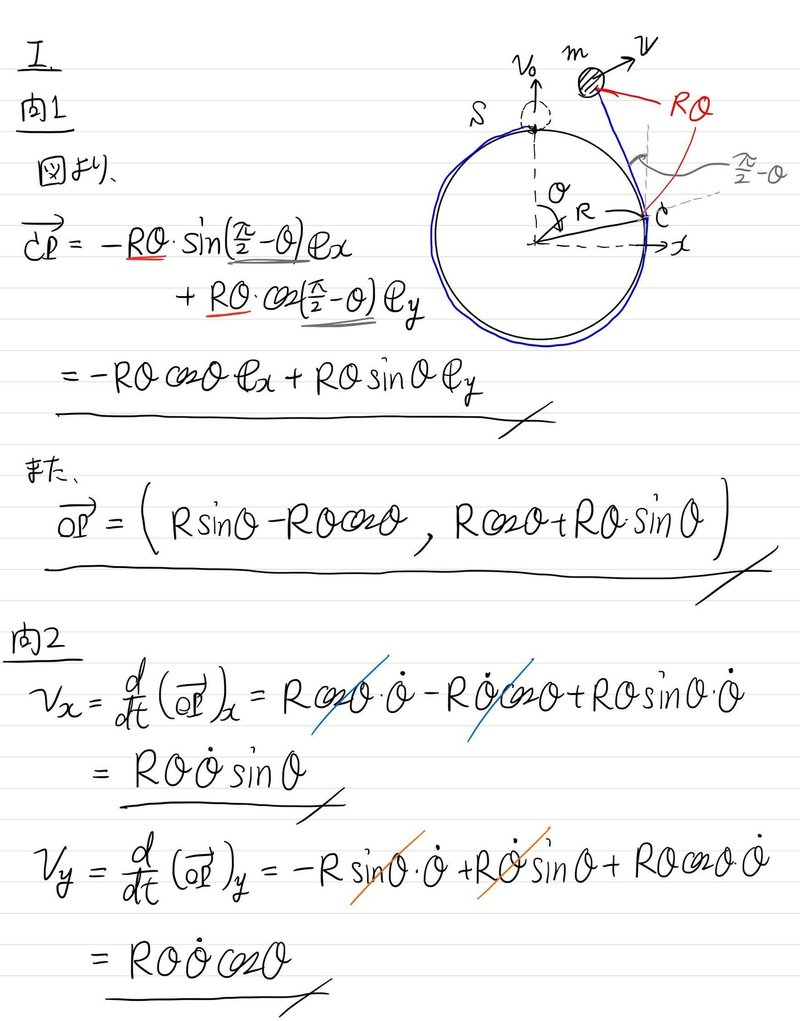 I.
問1
図より、
S
V₀
m
v
Rθ
π/2-θ
θ
R
C
x
→CP = -Rθ·sin(π/2-θ)ex
+ Rθ·cos(π/2-θ)ey
= -Rθcosθ ex + Rθsinθ ey
また、
→OP = (Rsinθ-Rθcosθ, Rcosθ+Rθ·sinθ)
問2
Vx = d/dt(→OP)x = Rcosθ·θ̇ - Rθ̇cosθ + Rθsinθ·θ̇
= Rθθ̇sinθ
Vy = d/dt(→OP)y = -Rsinθ·θ̇ + Rθ̇sinθ + Rθcosθ·θ̇
= Rθθ̇cosθ